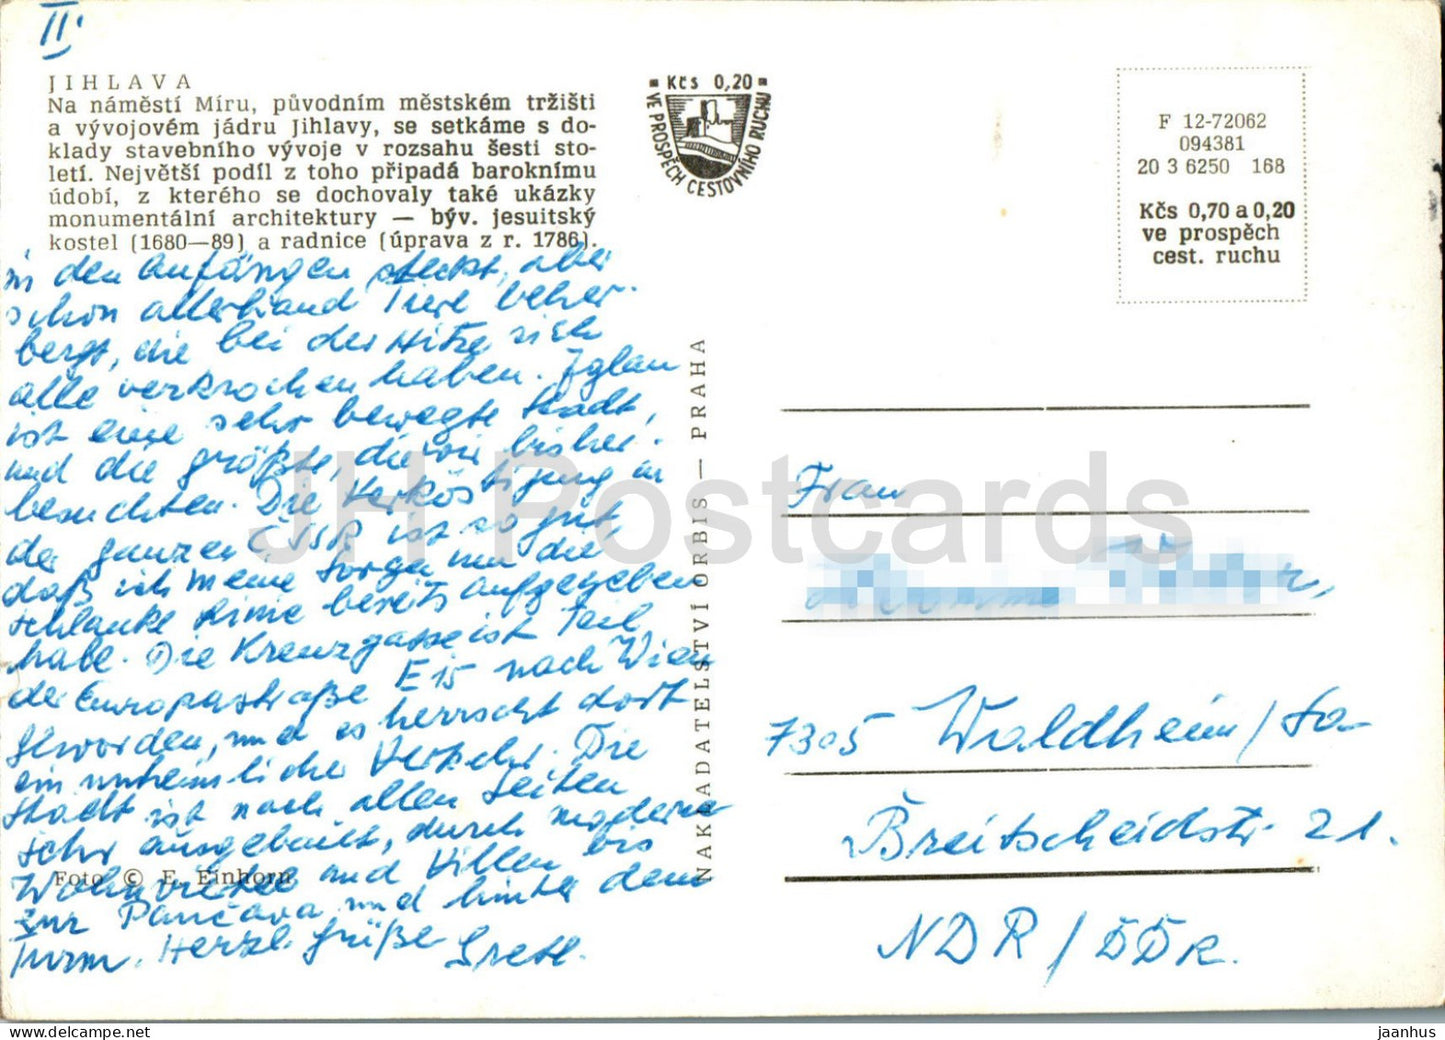 II.
JIHLAVA
Na náměstí Míru, původním městském tržišti
a vývojovém jádru Jihlavy, se setkáme s do-
klady stavebního vývoje v rozsahu šesti sto-
letí. Největší podíl z toho připadá baroknímu
údobí, z kterého se dochovaly také ukázky
monumentální architektury — býv. jesuitský
kostel (1680—89) a radnice (úprava z r. 1786).
in den Anfängen steckt, aber
schon allerhand Tiere beher-
bergt, die bei der Hitze sich
alle verkrochen haben. Iglau
ist eine sehr bewegte Stadt,
und die größte, die wir bisher
besuchten. Die Verköstigung in
der ganzen ČSSR ist so gut,
daß ich meine Sorgen um die
schlanke Linie bereits aufgegeben
habe. Die Kreuzgasse ist Teil
der Europastraße E 15 nach Wien
geworden, und es herrscht dort
ein unheimlicher Verkehr. Die
Stadt ist nach allen Seiten
sehr ausgebaut, durch moderne
Wohnviertel und Villen bis
zur Pančava und hinter dem
Turm. Herzl. Grüße Gretl.
Foto © E. Einhorn
Kčs 0,20
VE PROSPĚCH CESTOVNÍHO RUCHU
NAKLADATELSTVÍ ORBIS — PRAHA
F 12-72062
094381
20 3 6250 168
Kčs 0,70 a 0,20
ve prospěch
cest. ruchu
Frau
7305 Waldheim/Sa-
Breitscheidstr. 21.
NDR/DDR.
JH Postcards
hippostcard.com
jaanhus